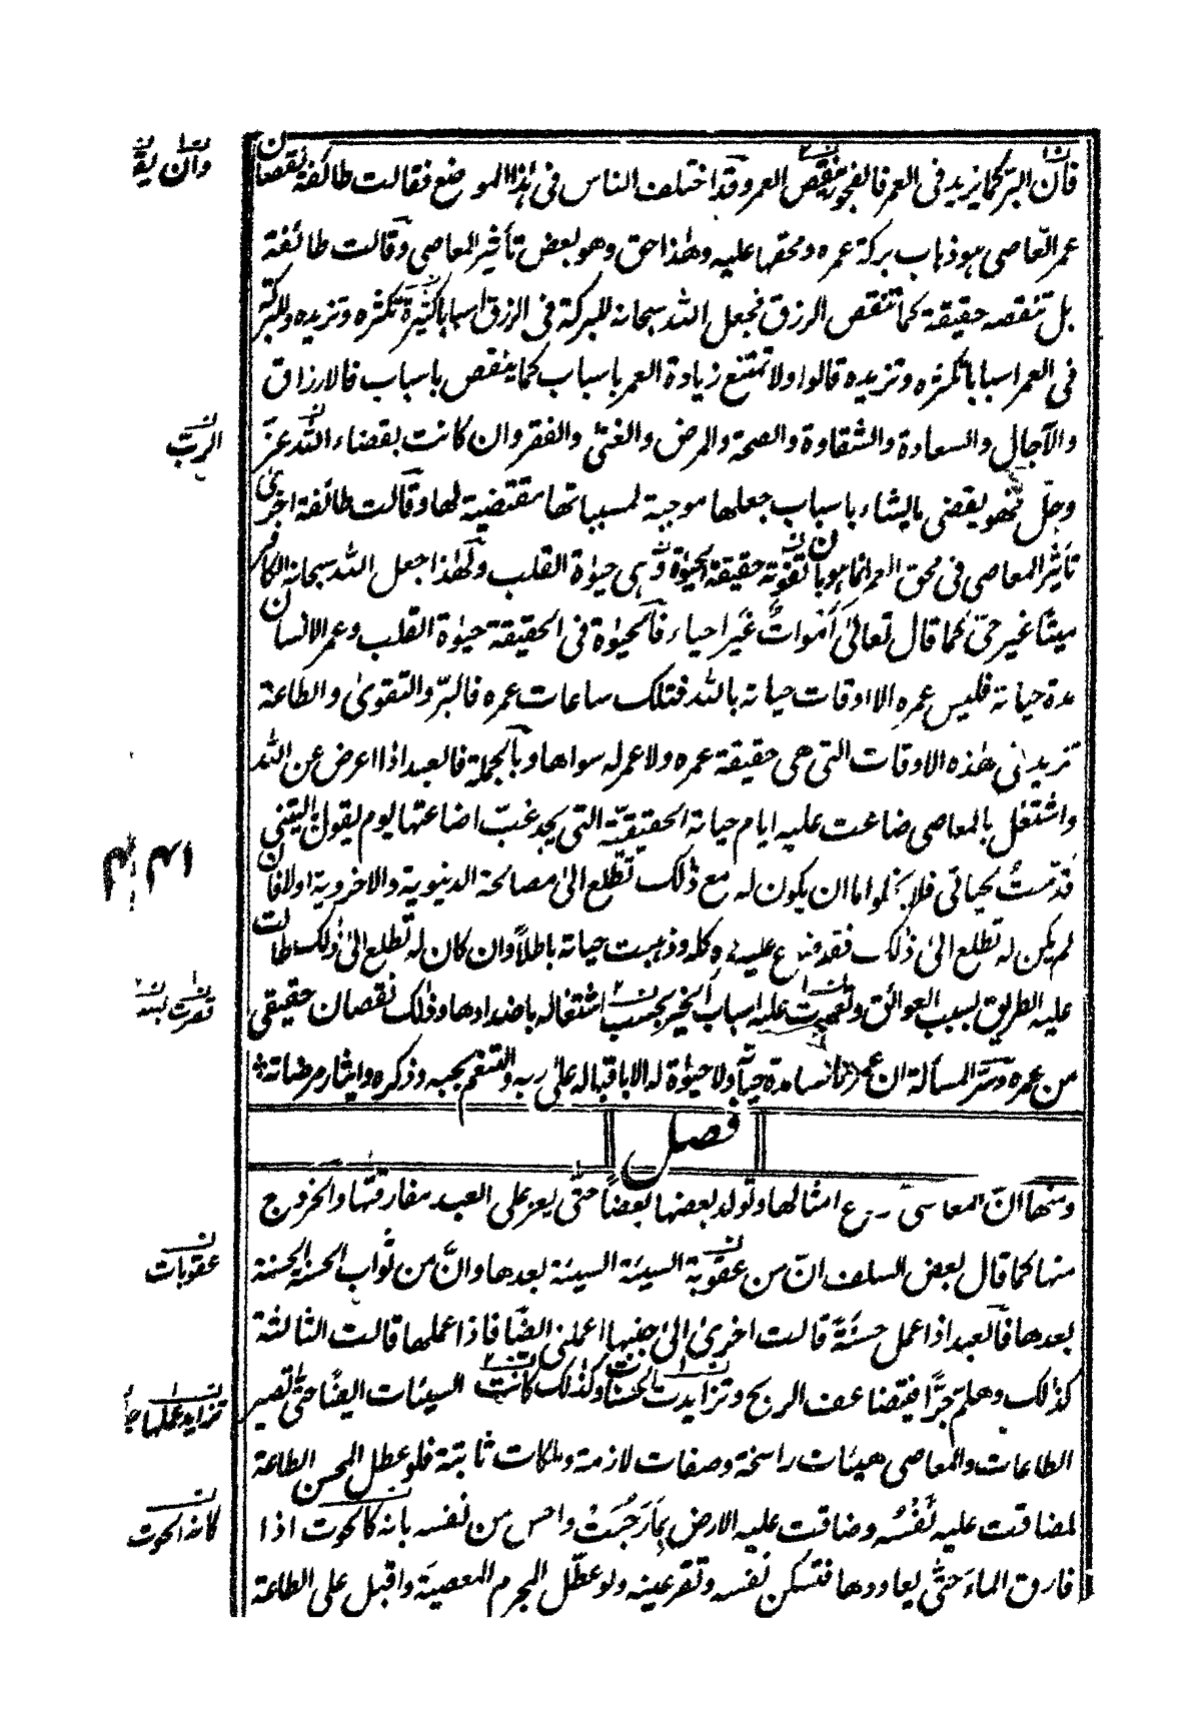 فان البر كما يزيد فى العمر فالفجور ينقص العمر وقد اختلف الناس فى هذا الموضع فقالت طائفة نقصان
عمر العاصى هو ذهاب بركة عمره ومحقها عليه وهذا حق وهو بعض تأثير المعاصى وقالت طائفة
بل تنقصه حقيقة كما تنقص الرزق فجعل الله سبحانه للبركة فى الرزق اسبابا كثيرة تكثره وتزيده وللبركة
فى العمر اسبابا تكثره وتزيده قالوا ولا تمتنع زيادة العمر باسباب كما ينقص باسباب فالارزاق
والآجال والسعادة والشقاوة والصحة والمرض والغنى والفقر وان كانت بقضاء الله عزّ
وجلّ فهو يقضى ما يشاء باسباب جعلها موجبة لمسبباتها مقتضية لها وقالت طائفة اخرى
تأثير المعاصى فى محق العمر انما هو بان تفوته حقيقة الحيوٰة وهى حيوٰة القلب ولهذا جعل الله سبحانه الكافر
ميتًا غير حىّ كما قال تعالىٰ أَمْوَاتٌ غَيْرُ احياء فالحيوٰة فى الحقيقة حيوٰة القلب وعمر الانسان
مدة حياته فليس عمره الا اوقات حياته بالله فتلك ساعات عمره فالبرّ والتقوىٰ والطاعة
تزيد فى هذه الاوقات التى هى حقيقة عمره ولا عمر له سواها وبالجملة فالعبد اذا اعرض عن الله
واشتغل بالمعاصى ضاعت عليه ايام حياته الحقيقيّة التى يجد غبّ اضاعتها يوم يقول يٰليتنى
قدّمتُ لحياتى فلا يخلوا ما ان يكون له مع ذٰلك تطلع الىٰ مصالحة الدنيوية والاخروية اولا فان
لم يكن له تطلع الىٰ ذٰلك فقد ضاع عليه عمره كله وذهبت حياته باطلاً وان كان له تطلع الىٰ ذٰلك طالت
عليه الطريق بسبب العوائق وتعسرت عليه اسباب الخير بحسب اشتغاله باضدادها وذٰلك نقصان حقيقى
من عمره وسرّ المسألة ان عمر الانسان مدة حياته ولا حيوٰة له الا باقباله علىٰ ربه والتنعم بحبه وذكره وايثار مرضاته
فصل
ومنها انّ المعاصى تزرع امثالها وتولد بعضها بعضًا حتّى يعز على العبد مفارقتها والخروج
منها كما قال بعض السلف انّ من عقوبة السيئة السيئة بعدها وانَّ من ثواب الحسنة الحسنة
بعدها فالعبد اذا عمل حسنَةً قالت اخرىٰ الىٰ جنبها اعملنى ايضًا فاذا عملها قالت الثالثة
كذٰلك وهلم جرًّا فيتضاعف الربح وتزايدت الحسنات وكذلك كانت السيئات ايضًا حتّى تصير
الطاعات والمعاصى هيئات راسخة وصفات لازمة وملكات ثابتة فلو عطل المحسن الطاعة
لضاقت عليه نَفْسُه وضاقت عليه الارض بِمَا رَحُبَتْ واحس من نفسه بانه كالحوت اذا
فارق الماءَ حتّى يعاودها فتسكن نفسه وتقر عينه ولو عطّل المجرم المعصيَة واقبل على الطاعة
الربّ
عقوبات
كانه الحوت